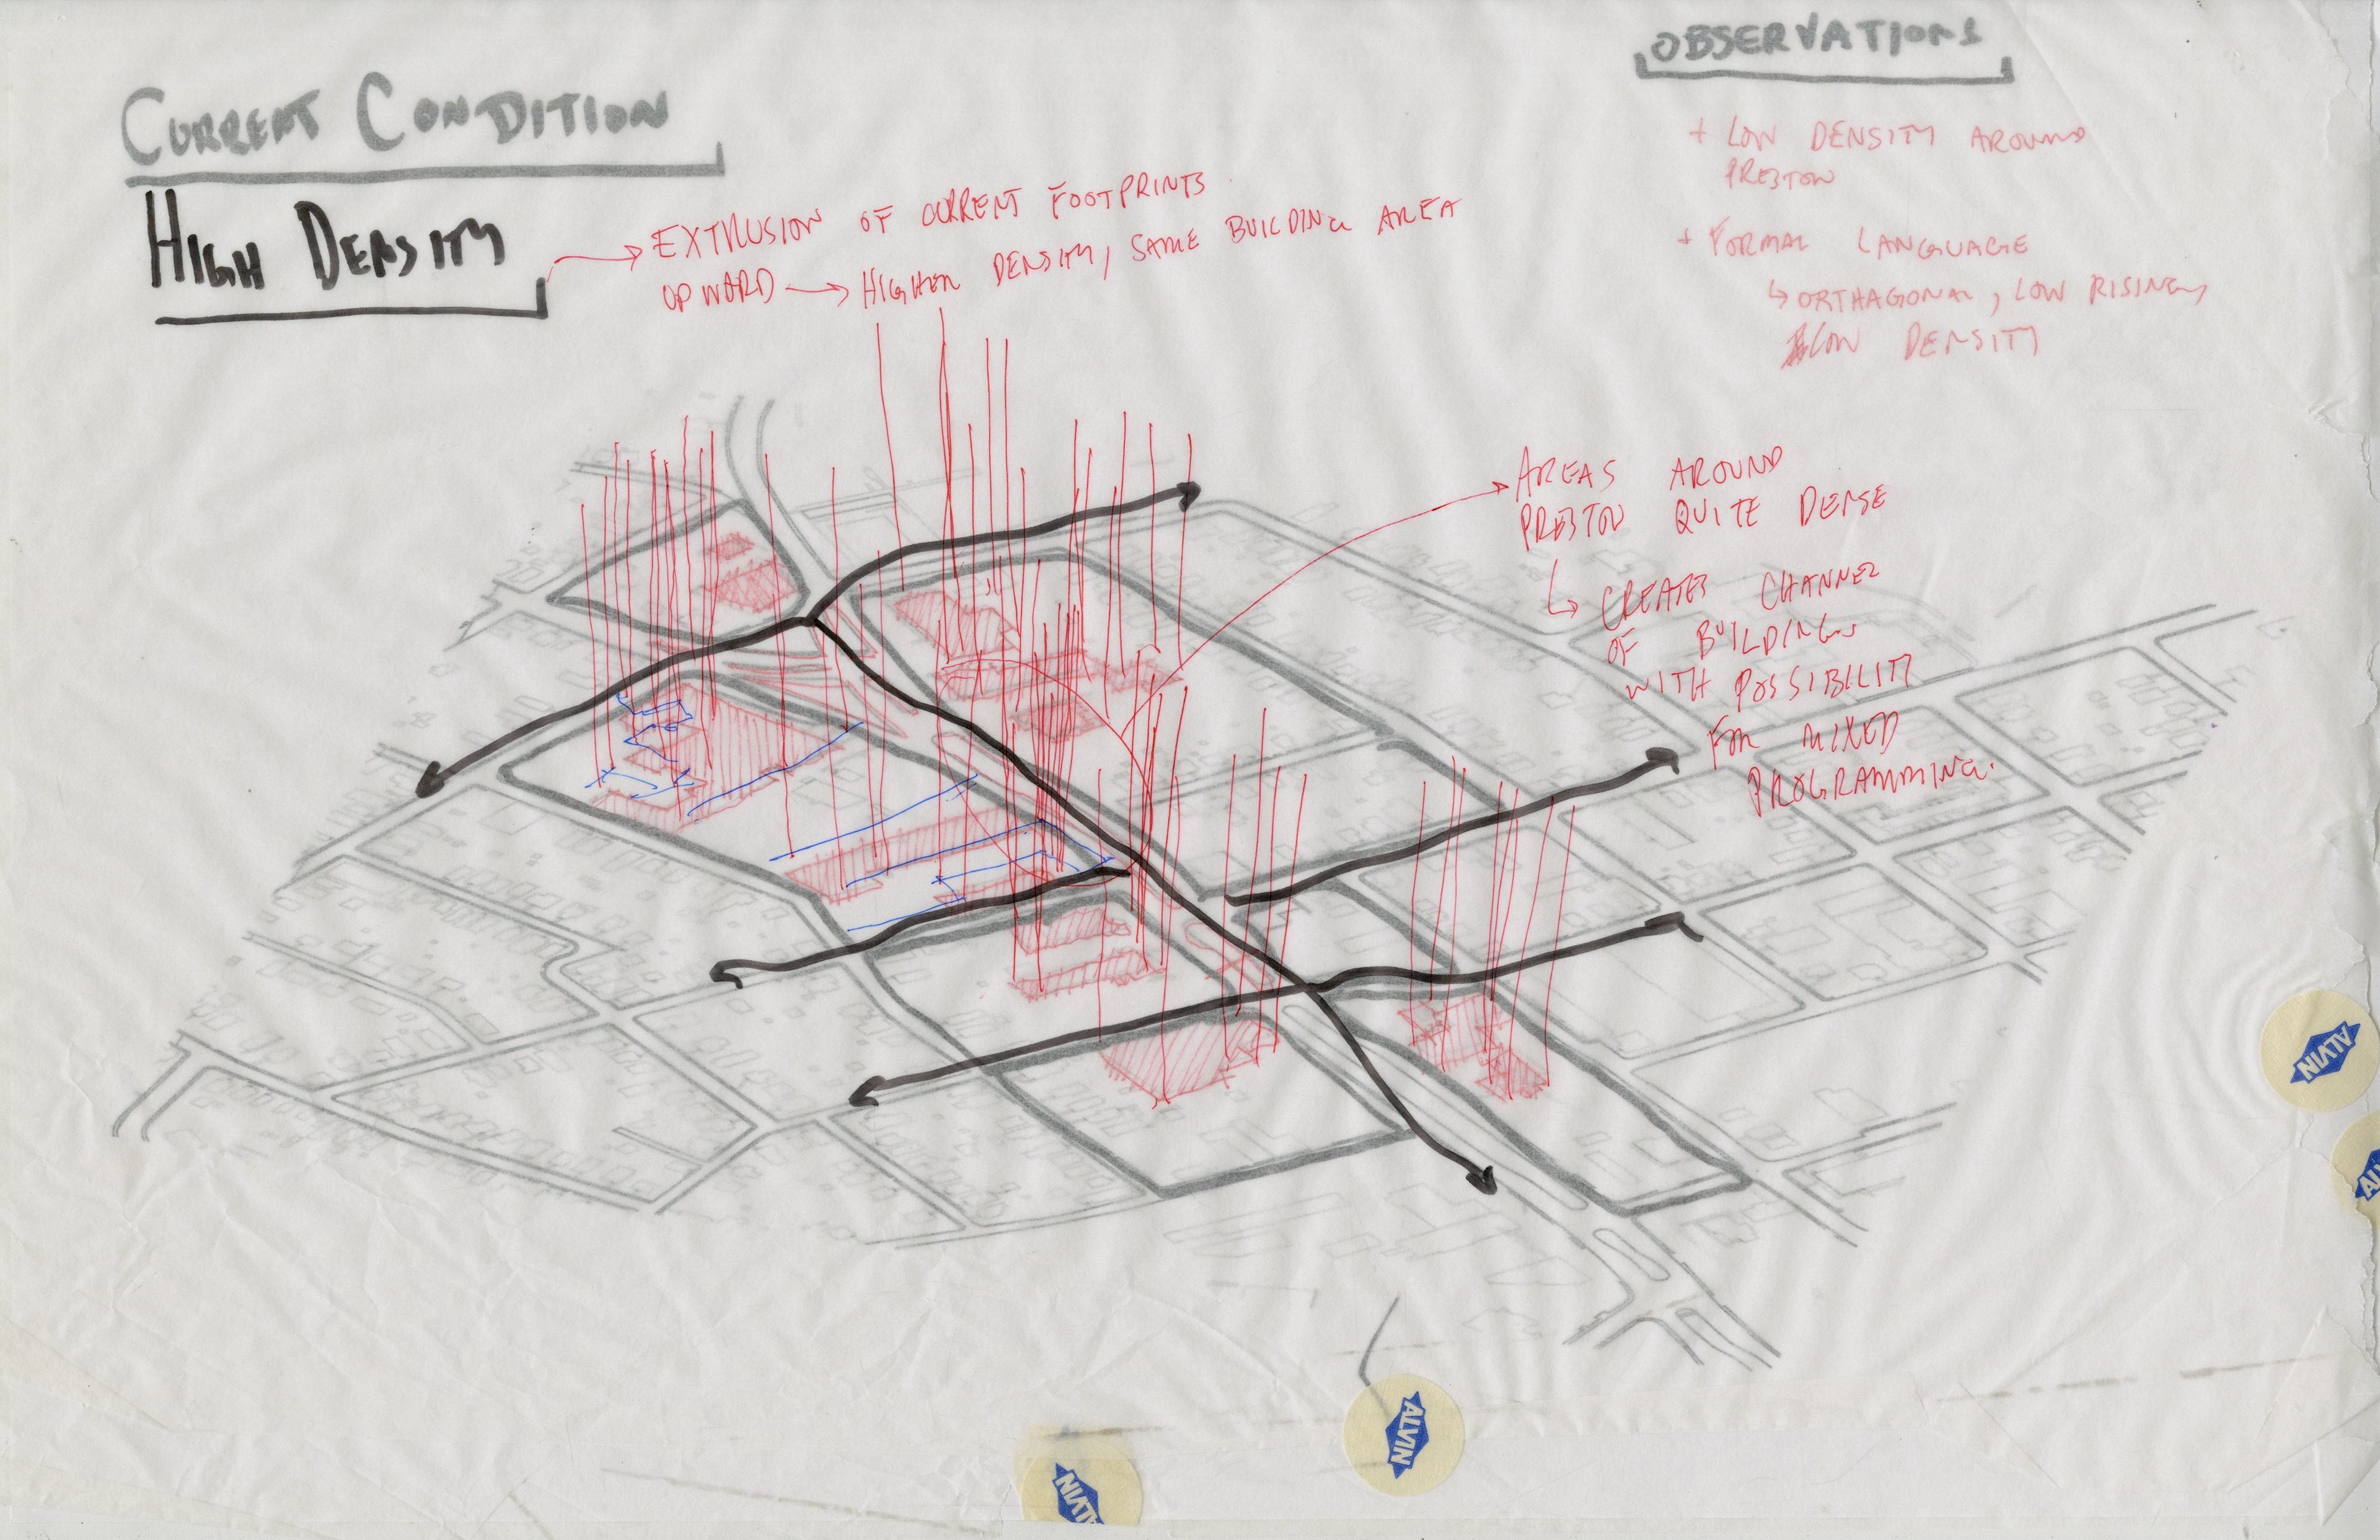 CURRENT CONDITION
HIGH DENSITY
EXTRUSION OF CURRENT FOOTPRINTS
UPWARD → HIGHER DENSITY, SAME BUILDING AREA
OBSERVATIONS
+ LOW DENSITY AROUND
PRESTON
+ FORMAL LANGUAGE
↳ ORTHAGONAL, LOW RISING,
LOW DENSITY
AREAS AROUND
PRESTON QUITE DENSE
↳ CREATES CHANNEL
OF BUILDINGS
WITH POSSIBILITY
FOR MIXED
PROGRAMMING.
ALVIN
ALVIN
ALVIN